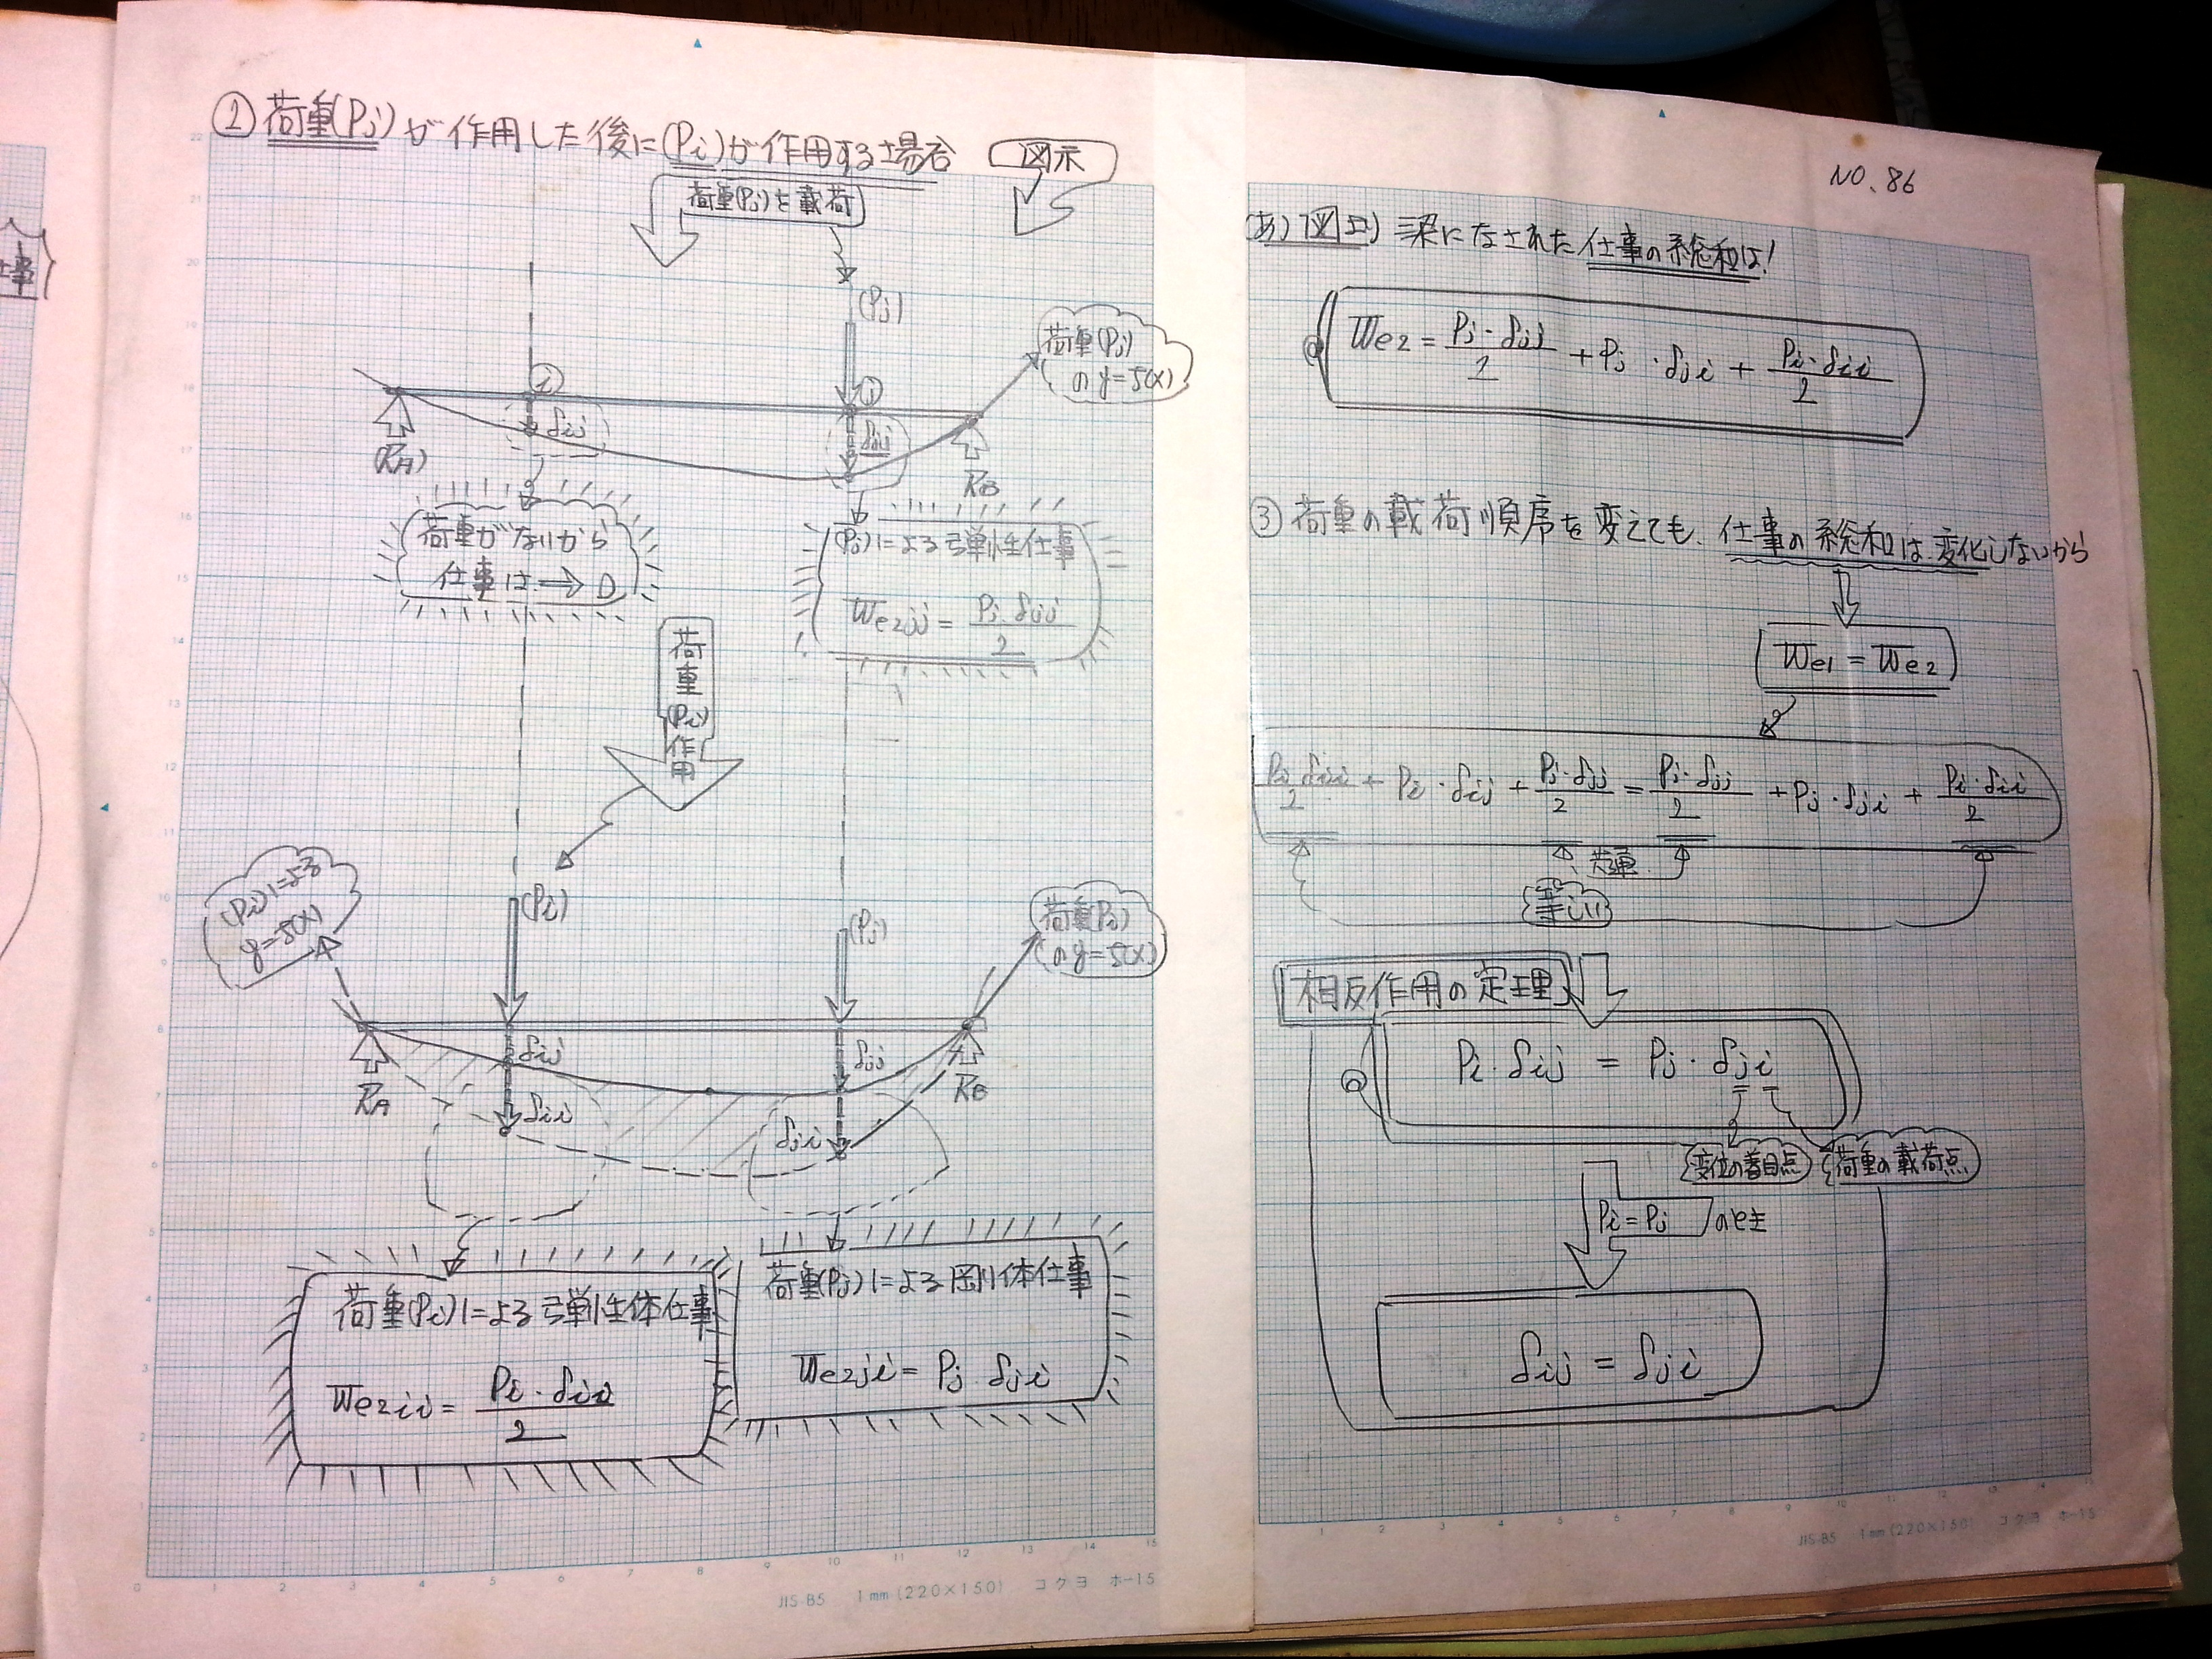 ② 荷重(Pj)が作用した後に(Pi)が作用する場合 図示
荷重(Pj)を載荷
(Pj)
荷重(Pj)
の y=f(x)
i
j
δij
δjj
(RA)
RB
荷重がないから
仕事は → 0
(Pj)による弾性仕事
We2jj = Pj・δjj / 2
荷重(Pi)作用
(Pi)による
y=f(x)
(Pi)
(Pj)
荷重(Pj)
の y=f(x)
δij
δjj
RA
RB
δii
δji
荷重(Pi)による弾性体仕事
We2ii = Pi・δii / 2
荷重(Pj)による剛体仕事
We2ji = Pj・δji
JIS-B5 1mm(220×150) コクヨ ホ-15
NO. 86
(あ) 図より 梁になされた仕事の総和は!
We2 = Pj・δjj / 2 + Pj・δji + Pi・δii / 2
③ 荷重の載荷順序を変えても、仕事の総和は変化しないから
We1 = We2
Pi・δii / 2 + Pi・δij + Pj・δjj / 2 = Pj・δjj / 2 + Pj・δji + Pi・δii / 2
共通
等しい
相反作用の定理
Pi・δij = Pj・δji
変位の着目点
荷重の載荷点
Pi=Pj のとき
δij = δji
JIS-B5 1mm(220×150) コクヨ ホ-15